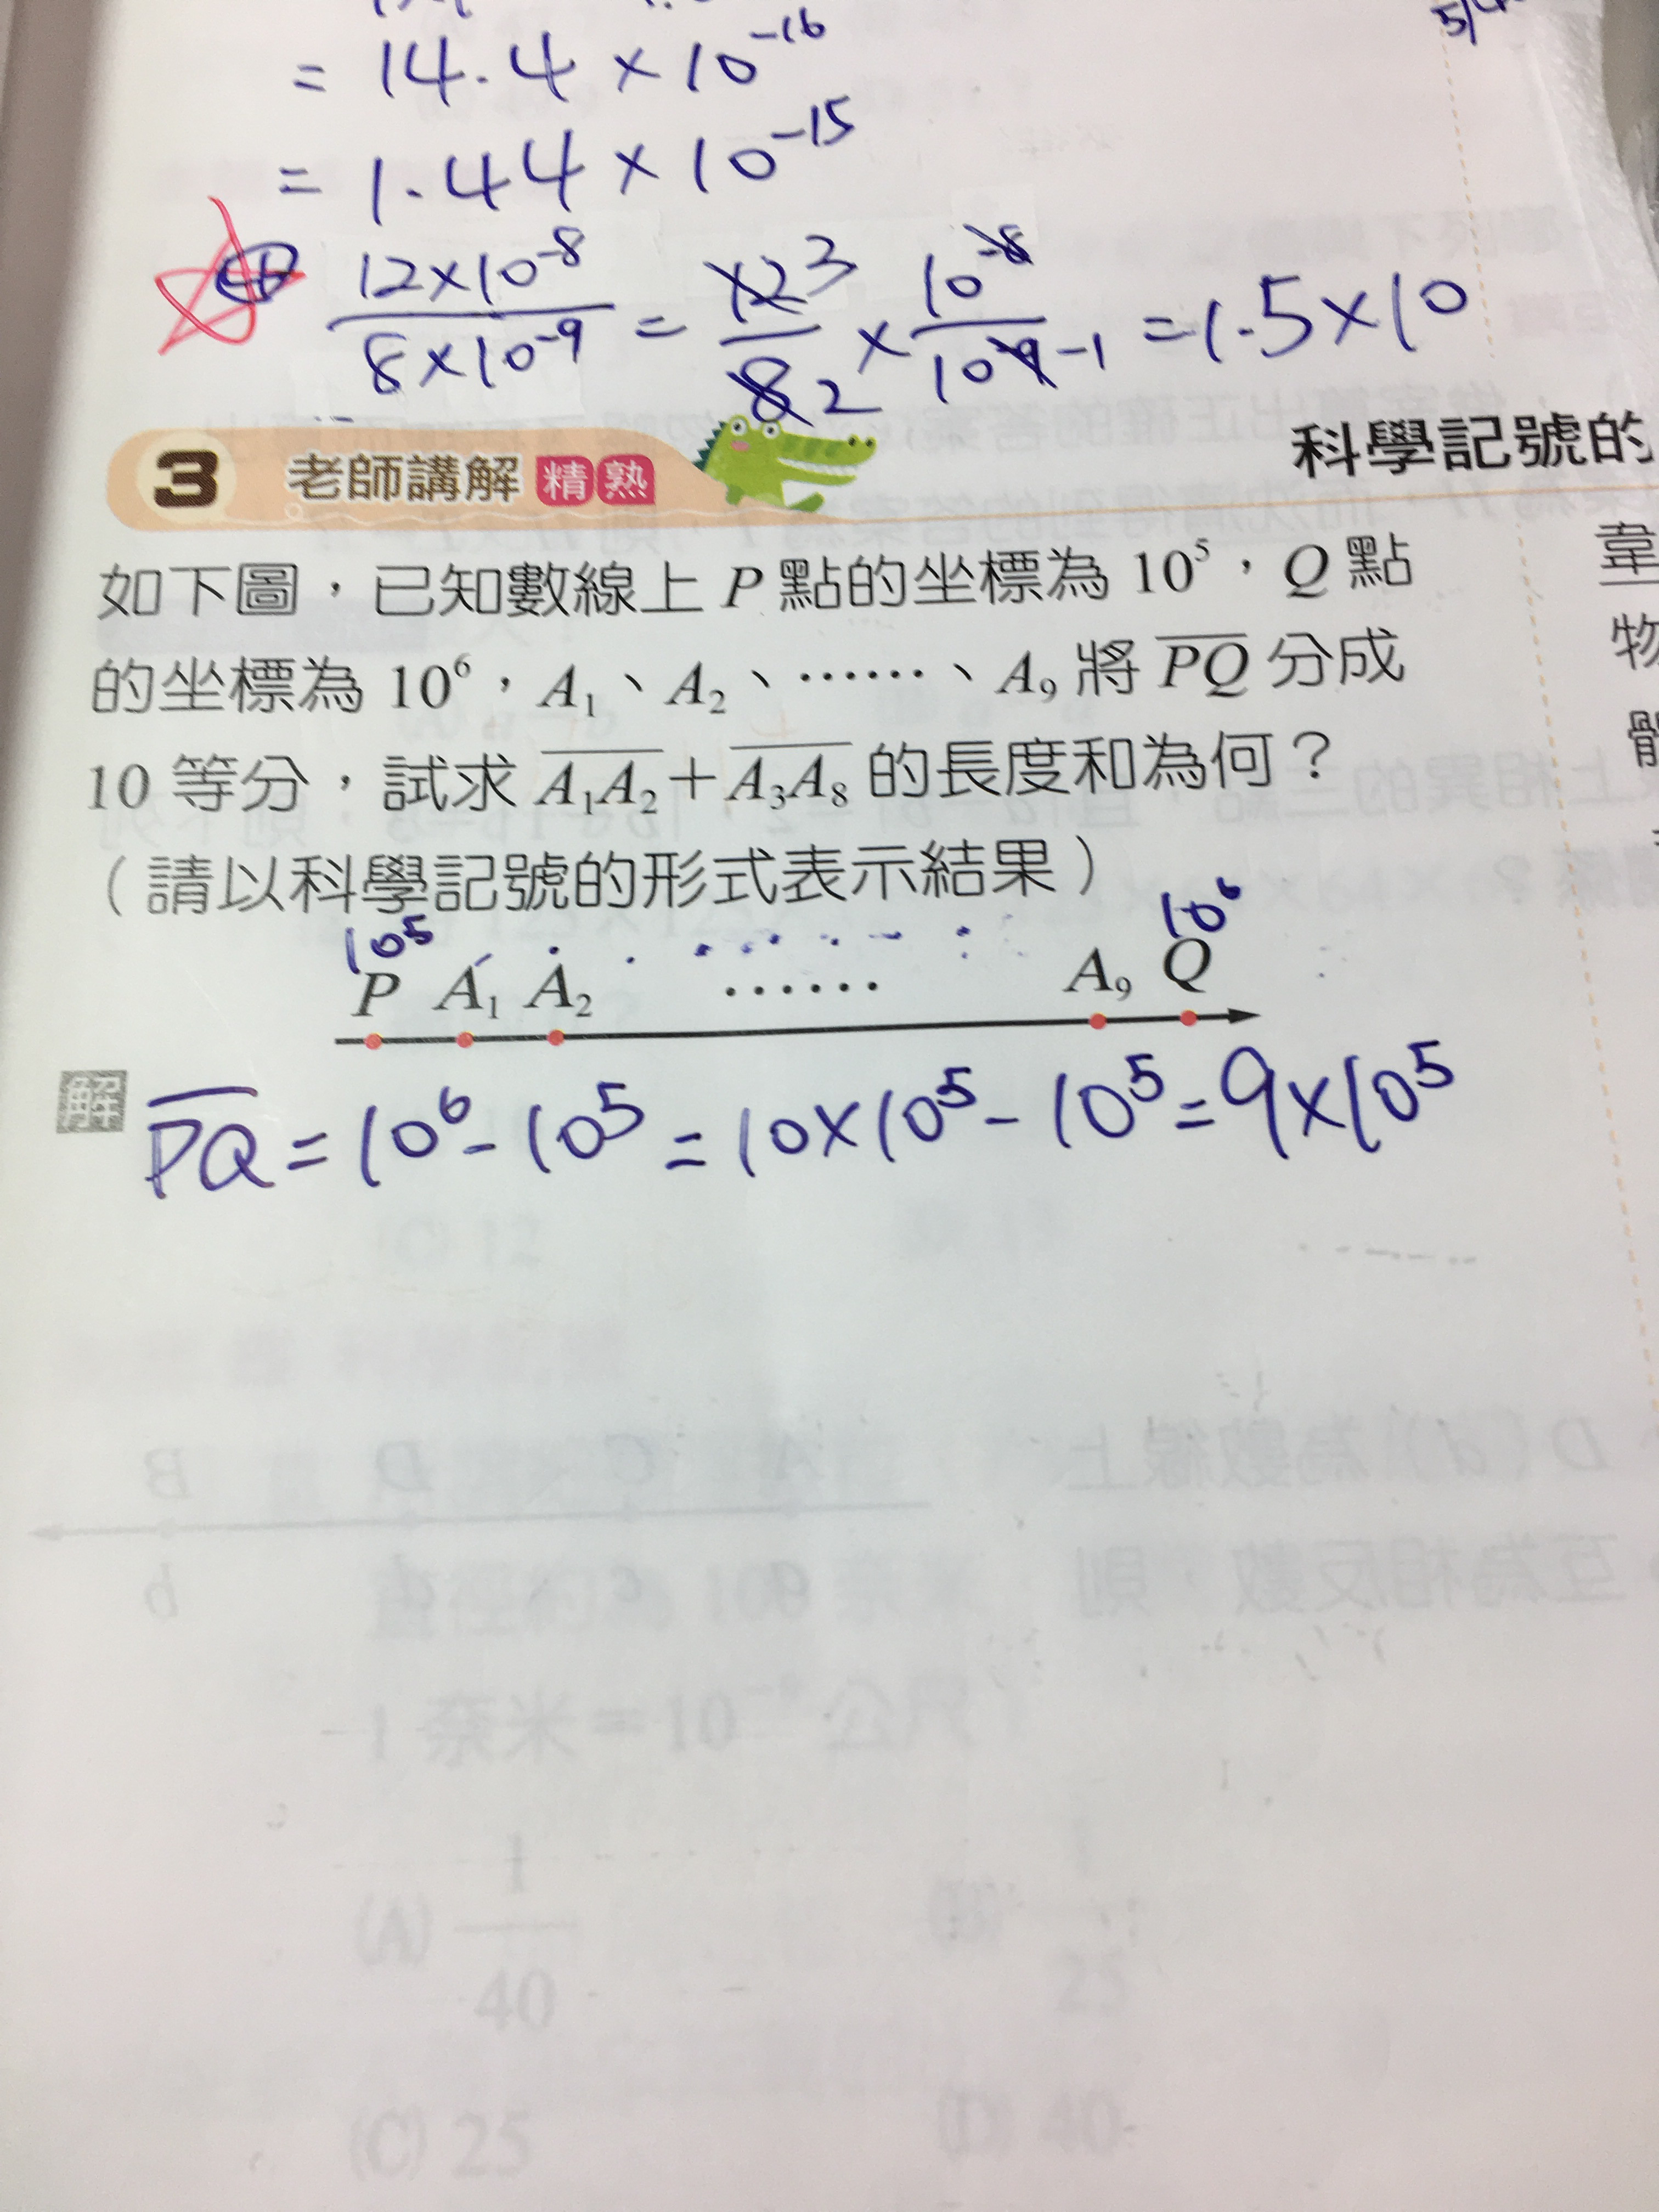 = 14.4 × 10⁻¹⁶
= 1.44 × 10⁻¹⁵
④ 12×10⁻⁸ / 8×10⁻⁹ = 12 3 / 8 2 × 10⁻⁸ / 10⁻⁹ -1 = 1.5×10
3 老師講解 精熟
科學記號的
如下圖，已知數線上 P 點的坐標為 10⁵，Q 點
的坐標為 10⁶，A₁、A₂、……、A₉ 將 PQ 分成
10 等分，試求 A₁A₂＋A₃A₈ 的長度和為何？
（請以科學記號的形式表示結果）
10⁵ 10⁶
P A₁ A₂ …… A₉ Q
解 PQ = 10⁶ - 10⁵ = 10×10⁵ - 10⁵ = 9×10⁵
韋
物